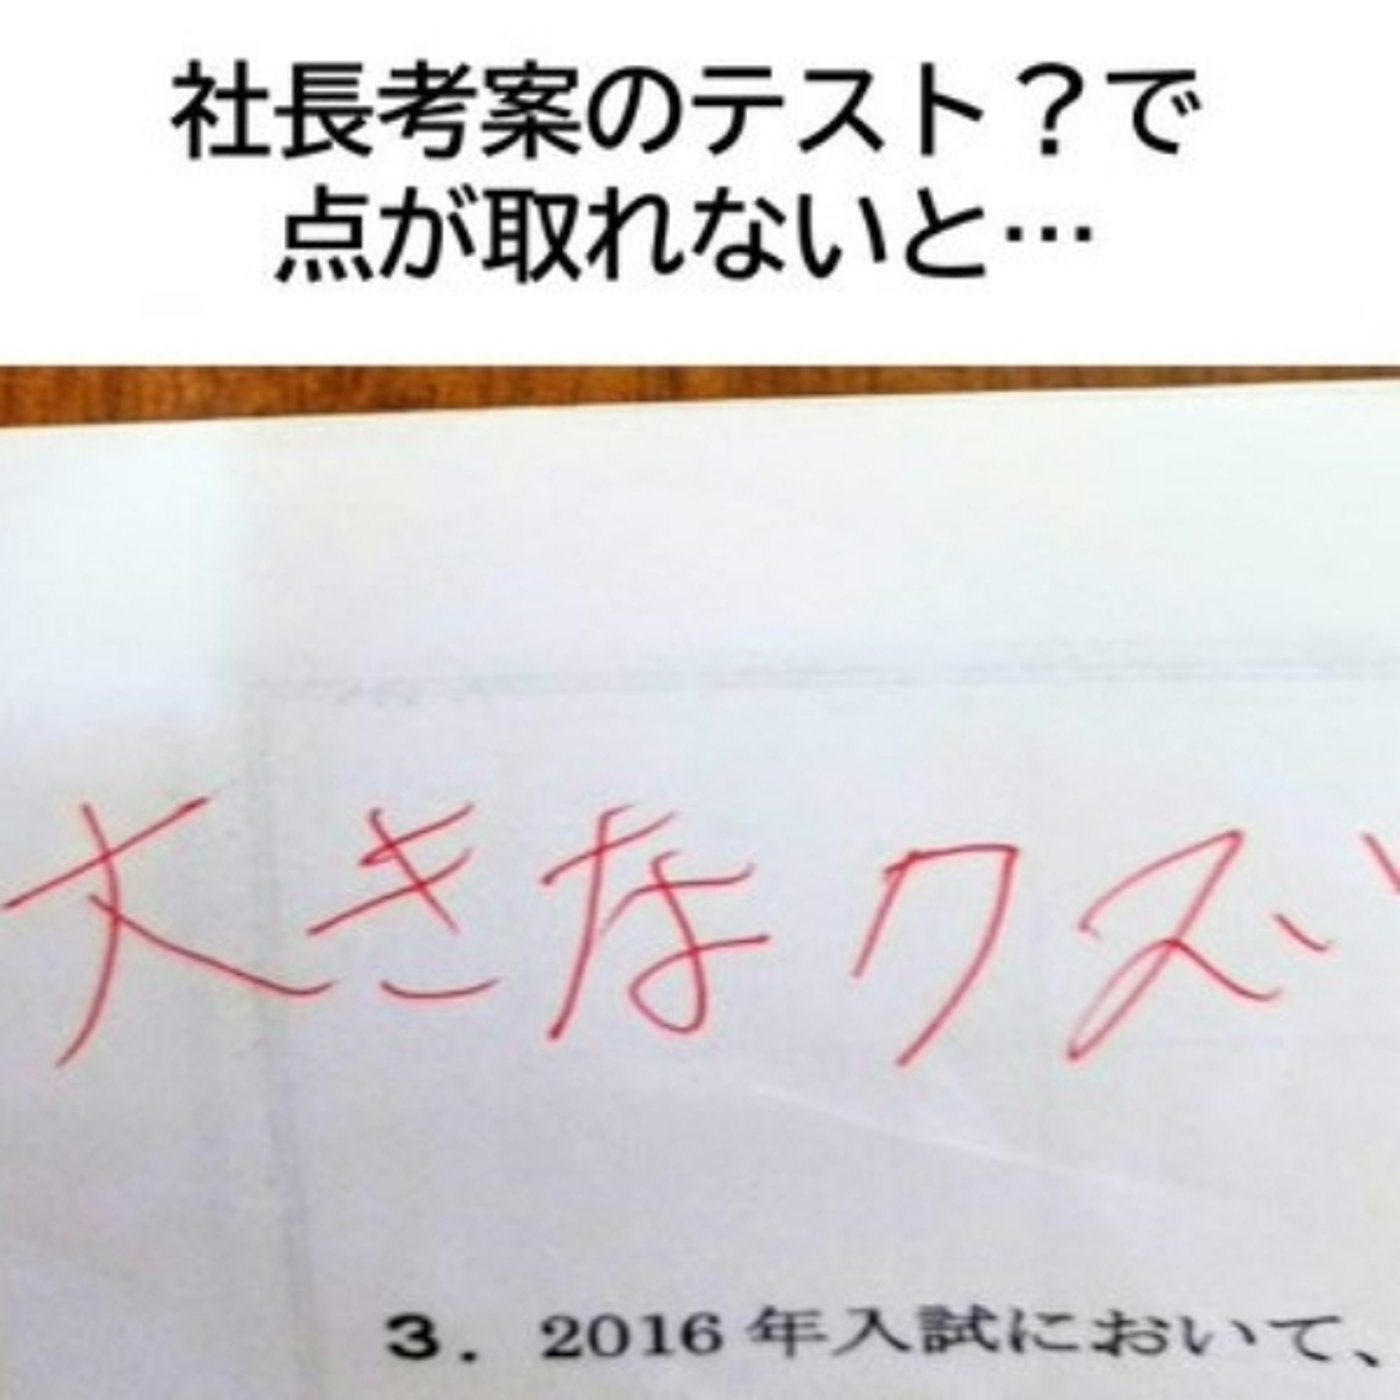 社長考案のテスト？で
点が取れないと…
大きなクズ
3．2016年入試において、